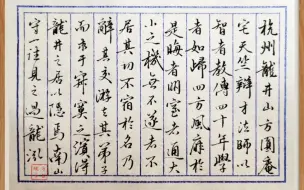 杭州龍井山方圓庵
記天竺辯才法師以
智者教傳四十年學
者如歸四方風靡於
是晦者明窒者通大
小之機無不遂者不
居其功不宿於名乃
辭其交游去其弟子
而求于寂寞之濱得
龍井之居以隱焉南山
守一往見之過龍泓